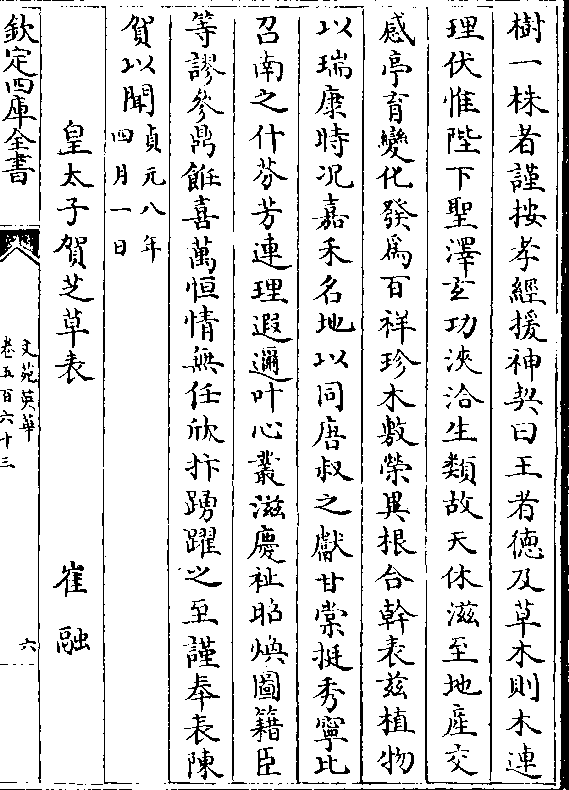 樹一株者謹按孝經援神契曰王者德及草木則木連
理伏惟陛下聖澤玄功浹洽生類故天休滋至地產交
感亭育變化發為百祥珍木敷榮異根合幹表兹植物
以瑞康時况嘉禾名地以同唐叔之獻甘棠挺秀寧比
召南之什芬芳連理遐邇叶心叢滋慶祉昭煥圖籍臣
等謬參鼎飪喜萬恒情無任欣抃踴躍之至謹奉表陳
賀以聞貞元八年四月一日
皇太子賀芝草表 崔融
欽定四庫全書
文苑英華
卷五百六十三
六